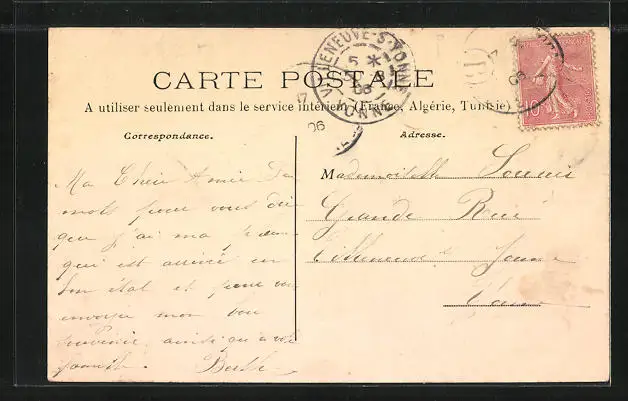 CARTE POSTALE
A utiliser seulement dans le service intérieur (France, Algérie, Tunisie)
Correspondance.
Adresse.
VILLENEUVE-S-YONNE
5 *
06
YONNE
17
06
10
Ma Chère Amie
mots pour vous dire
que j'ai ma
qui est arrivé en
bon état et pour vous
envoyer mon bon
souvenir ainsi qu'à votre
Mademoiselle
Grande Rue
Villeneuve s Yonne
Yonne